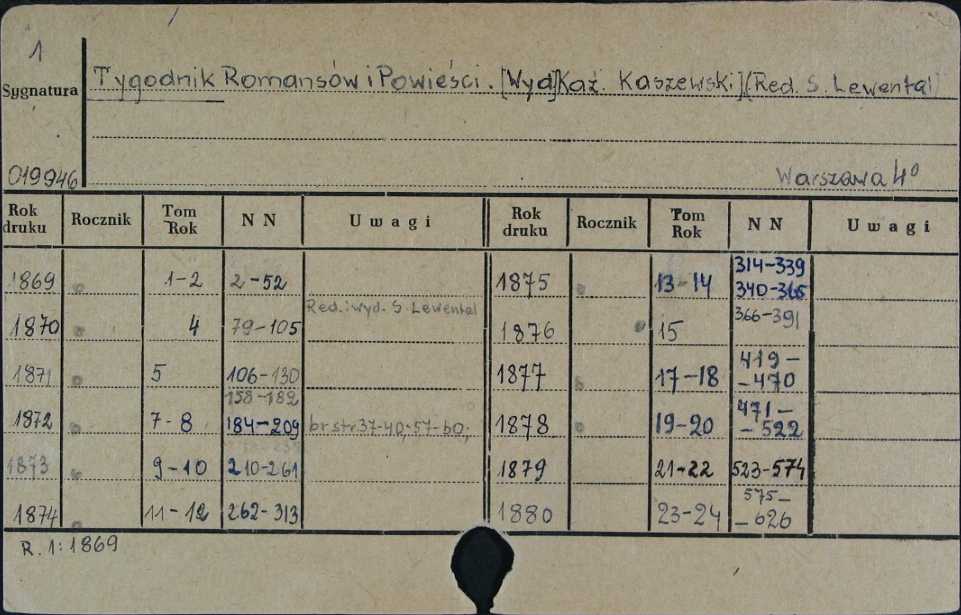 1
Sygnatura
Tygodnik Romansów i Powieści. [Wyd] Kaź. Kaszewski] (Red. S. Lewental)
019946
Warszawa 4°
Rok druku Rocznik Tom Rok NN Uwagi Rok druku Rocznik Tom Rok NN Uwagi
1869 1-2 2-52 1875 13-14 314-339 340-365
Red. i wyd. S. Lewental
1870 4 79-105 1876 15 366-391
1871 5 106-130 1877 17-18 419- -470
158-182
1872 7-8 184-209 br str 37-40, 57-60; 1878 19-20 471- -522
1873 9-10 210-261 1879 21-22 523-574
1874 11-12 262-313 1880 23-24 575- -626
R. 1: 1869